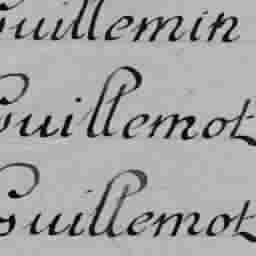 Guillemin
Guillemot
Guillemot